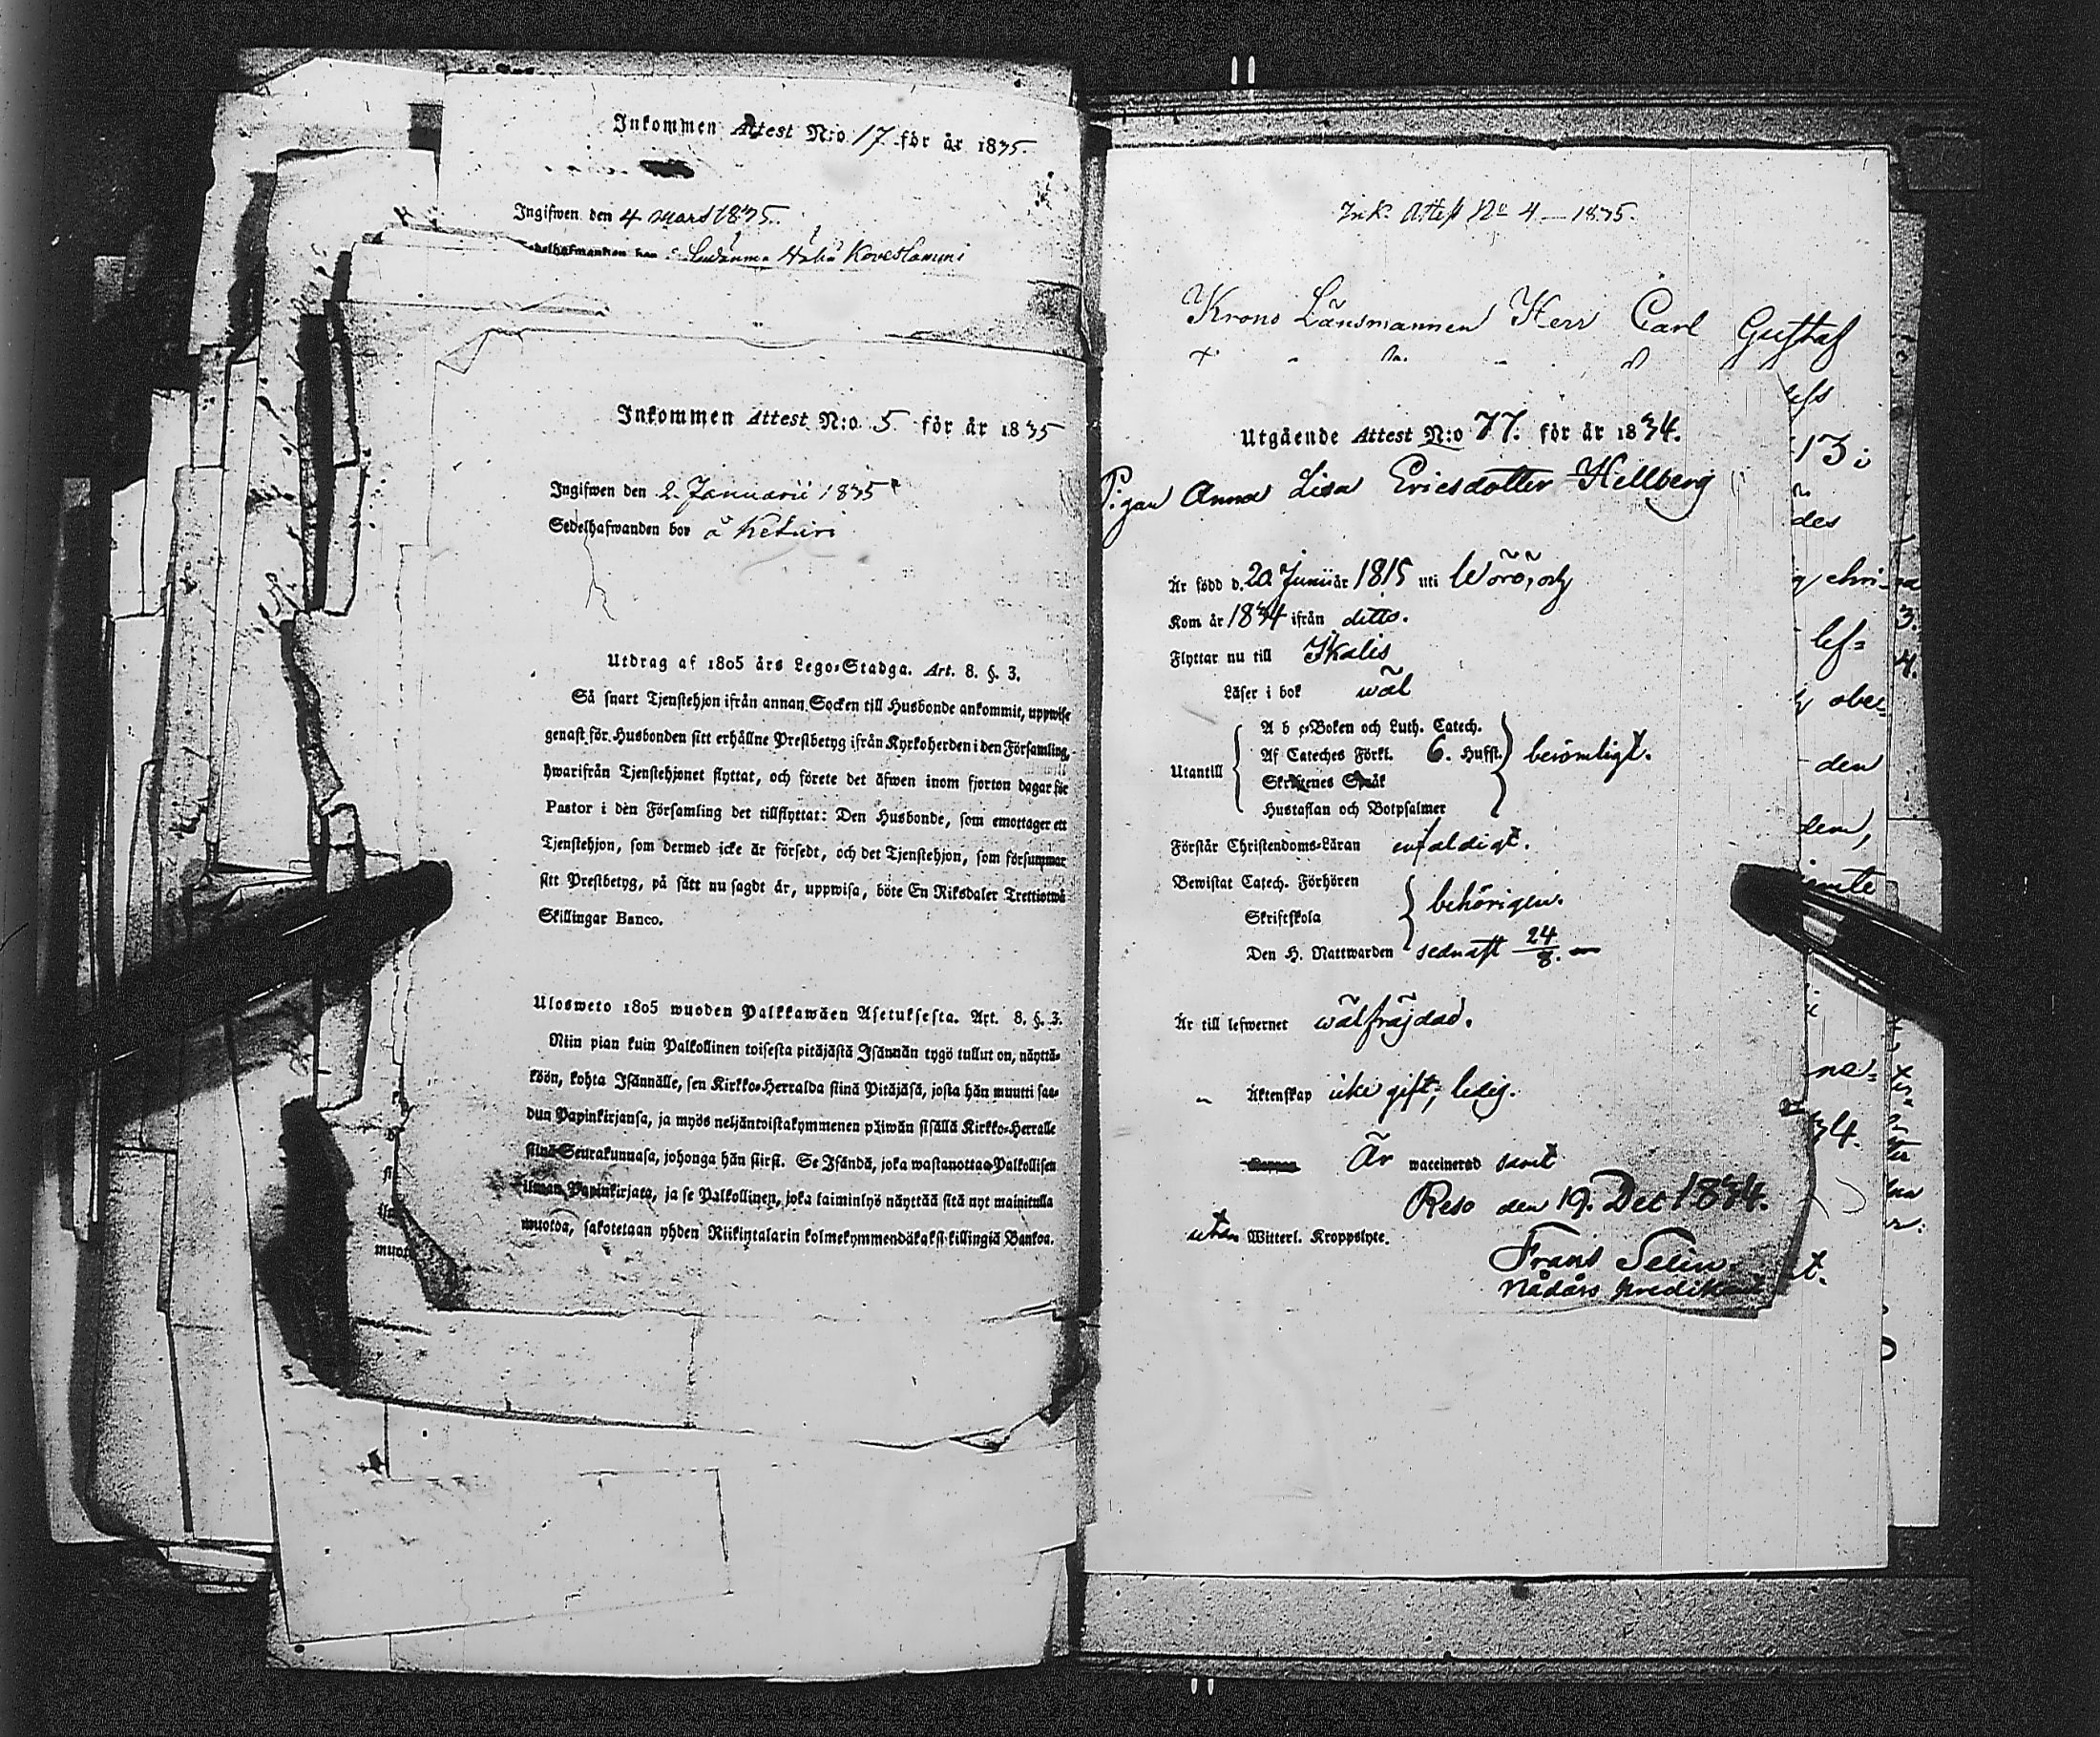 Inkommen Attest N:o 17 för år 1835.
Ingifwen den 4 Mars 1835.
Inkommen Attest N:o 5 för år 1835
Ingifwen den 2 Januarii 1835
Sedelhafwanden bor å Keturi
Utdrag af 1805 års Lego-Stadga. Art. 8. §. 3.
Så snart Tjenstehjon ifrån annan Socken till Husbonde ankommit, uppwise
genast för Husbonden sitt erhållne Prestbetyg ifrån Kyrkoherden i den Församling,
hwarifrån Tjenstehjonet flyttat, och förete det äfwen inom fjorton dagar för
Pastor i den Församling det tillflyttat: Den Husbonde, som emottager ett
Tjenstehjon, som dermed icke är försedt, och det Tjenstehjon, som försummar
sitt Prestbetyg, på sätt nu sagdt är, uppwisa, böte En Riksdaler Trettiotwå
Skillingar Banco.
Ulosweto 1805 wuoden Palkkawäen Asetuksesta. Art. 8. §. 3.
Niin pian kuin Palkollinen toisesta pitäjästä Isännän tygö tullut on, näyttä-
köön, kohta Isännälle, sen Kirkko-Herralda siinä Pitäjäsä, josta hän muutti saa-
dun Papinkirjansa, ja myös neljäntoistakymmenen päiwän sisällä Kirkko-Herralle
siinä Seurakunnasa, johonga hän siirsi. Se Isändä, joka wastanottaa Palkollisen
ilman Papinkirjata, ja se Palkollinen, joka laiminlyö näyttää sitä nyt mainitulla
muotoa, sakotetaan yhden Riikintalarin kolmekymmendäkaksi killingiä Bankoa.
Ink. Attest No 4 — 1835.
Krono Länsmannen Herr Carl Gustaf
Utgående Attest N:o 77. för år 1834.
Pigan Anna Lisa Ericsdotter Hellberg
Är född d. 20 Junii år 1815 uti Wörö, och
Kom år 1834 ifrån ditto.
Flyttar nu till Ikalis
Läser i bok wäl
Utantill
A b c-Boken och Luth. Catech.
Af Cateches Förkl. 6. Hufst. berömligt.
Skriftenes Språk
Hustaflan och Botpsalmer
Förstår Christendoms-Läran enfaldigt.
Bewistat Catech. Förhören
Skriftskola behörigen.
Den H. Nattwarden sednast 24/8.
Är till lefwernet wälfräjdad.
" Äktenskap icke gift; ledig.
Är waccinerad samt
Reso den 19. Dec 1834.
utan Witterl. Kroppslyte.
Frans Selin
Nådårs predikant